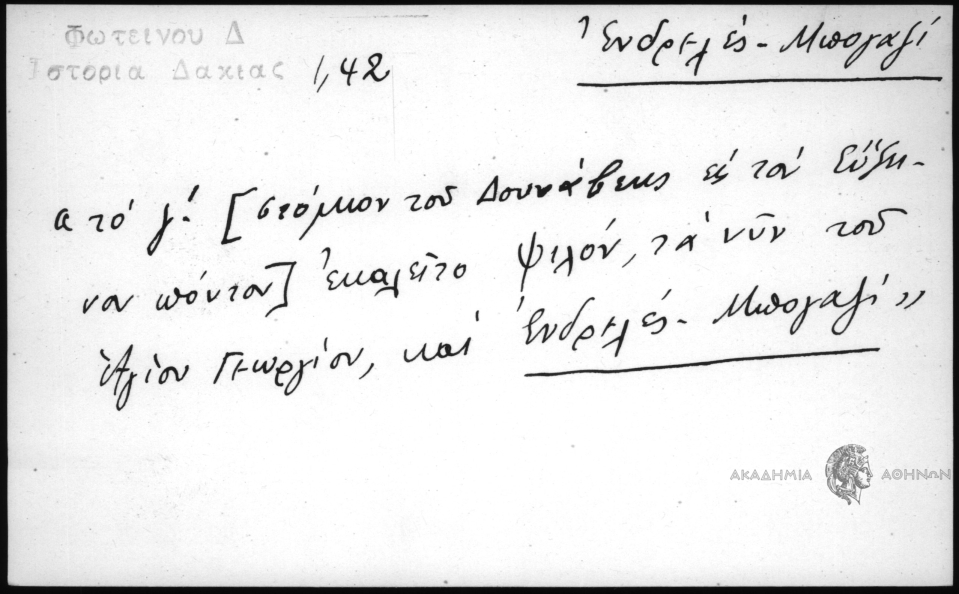 Φωτεινου Δ
Ιστορια Δακιας 1,42
Ἐνδρελές - Μπογαζί
«τό γ! [στόμιον τοῦ Δουνάβεως εἰς τόν Εὔξει-
νον πόντον] ἐκαλεῖτο Ψιλόν, τά νῦν τοῦ
Ἁγίου Γεωργίου, καί Ἐνδρελές - Μπογαζί»
ΑΚΑΔΗΜΙΑ ΑΘΗΝΩΝ